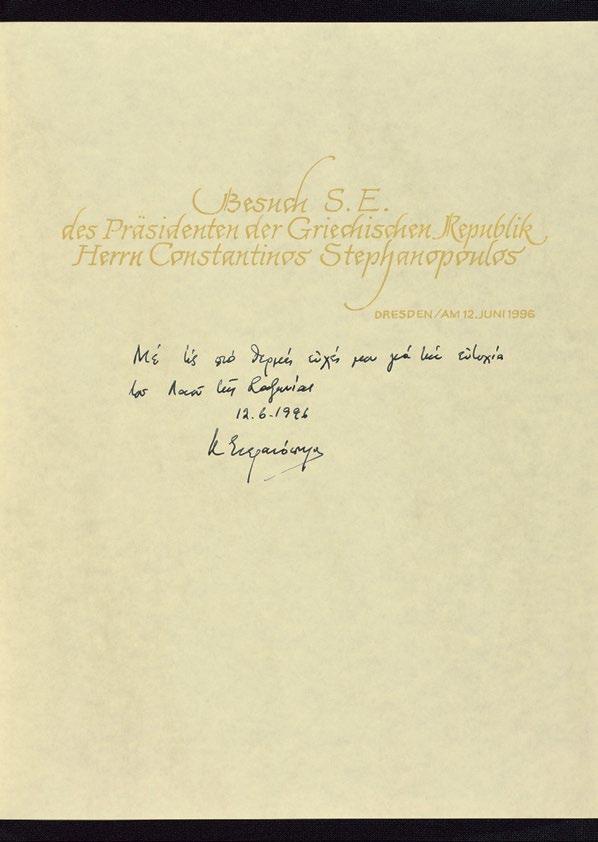 Besuch S. E.
des Präsidenten der Griechischen Republik
Herrn Constantinos Stephanopoulos
DRESDEN/AM 12. JUNI 1996
Μέ τίς πιό θερμές εὐχές μου γιά τήν εὐτυχία
τοῦ Λαοῦ τῆς Σαξωνίας
12.6.1996
Κ Στεφανόπουλος